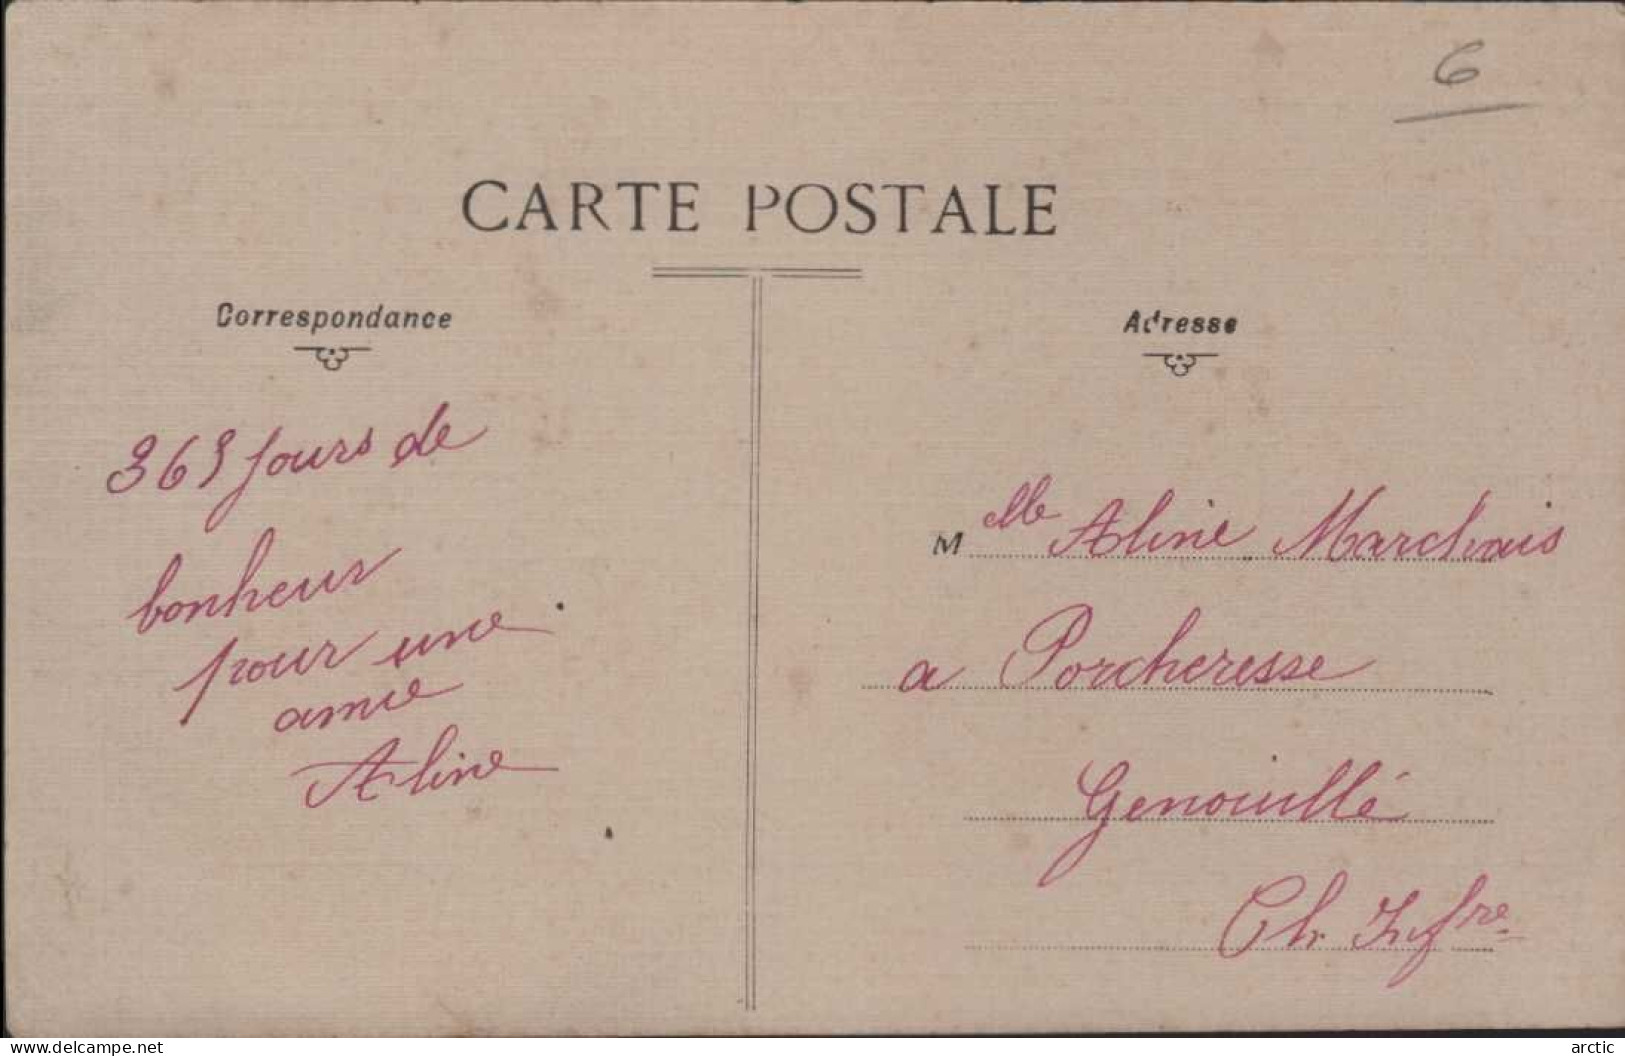 6
CARTE POSTALE
Correspondance
365 jours de
bonheur
pour une
amie
Aline
Adresse
Melle Aline Marchais
a Porcheresse
Genouillé
Ch. Infre
www.delcampe.net
arctic